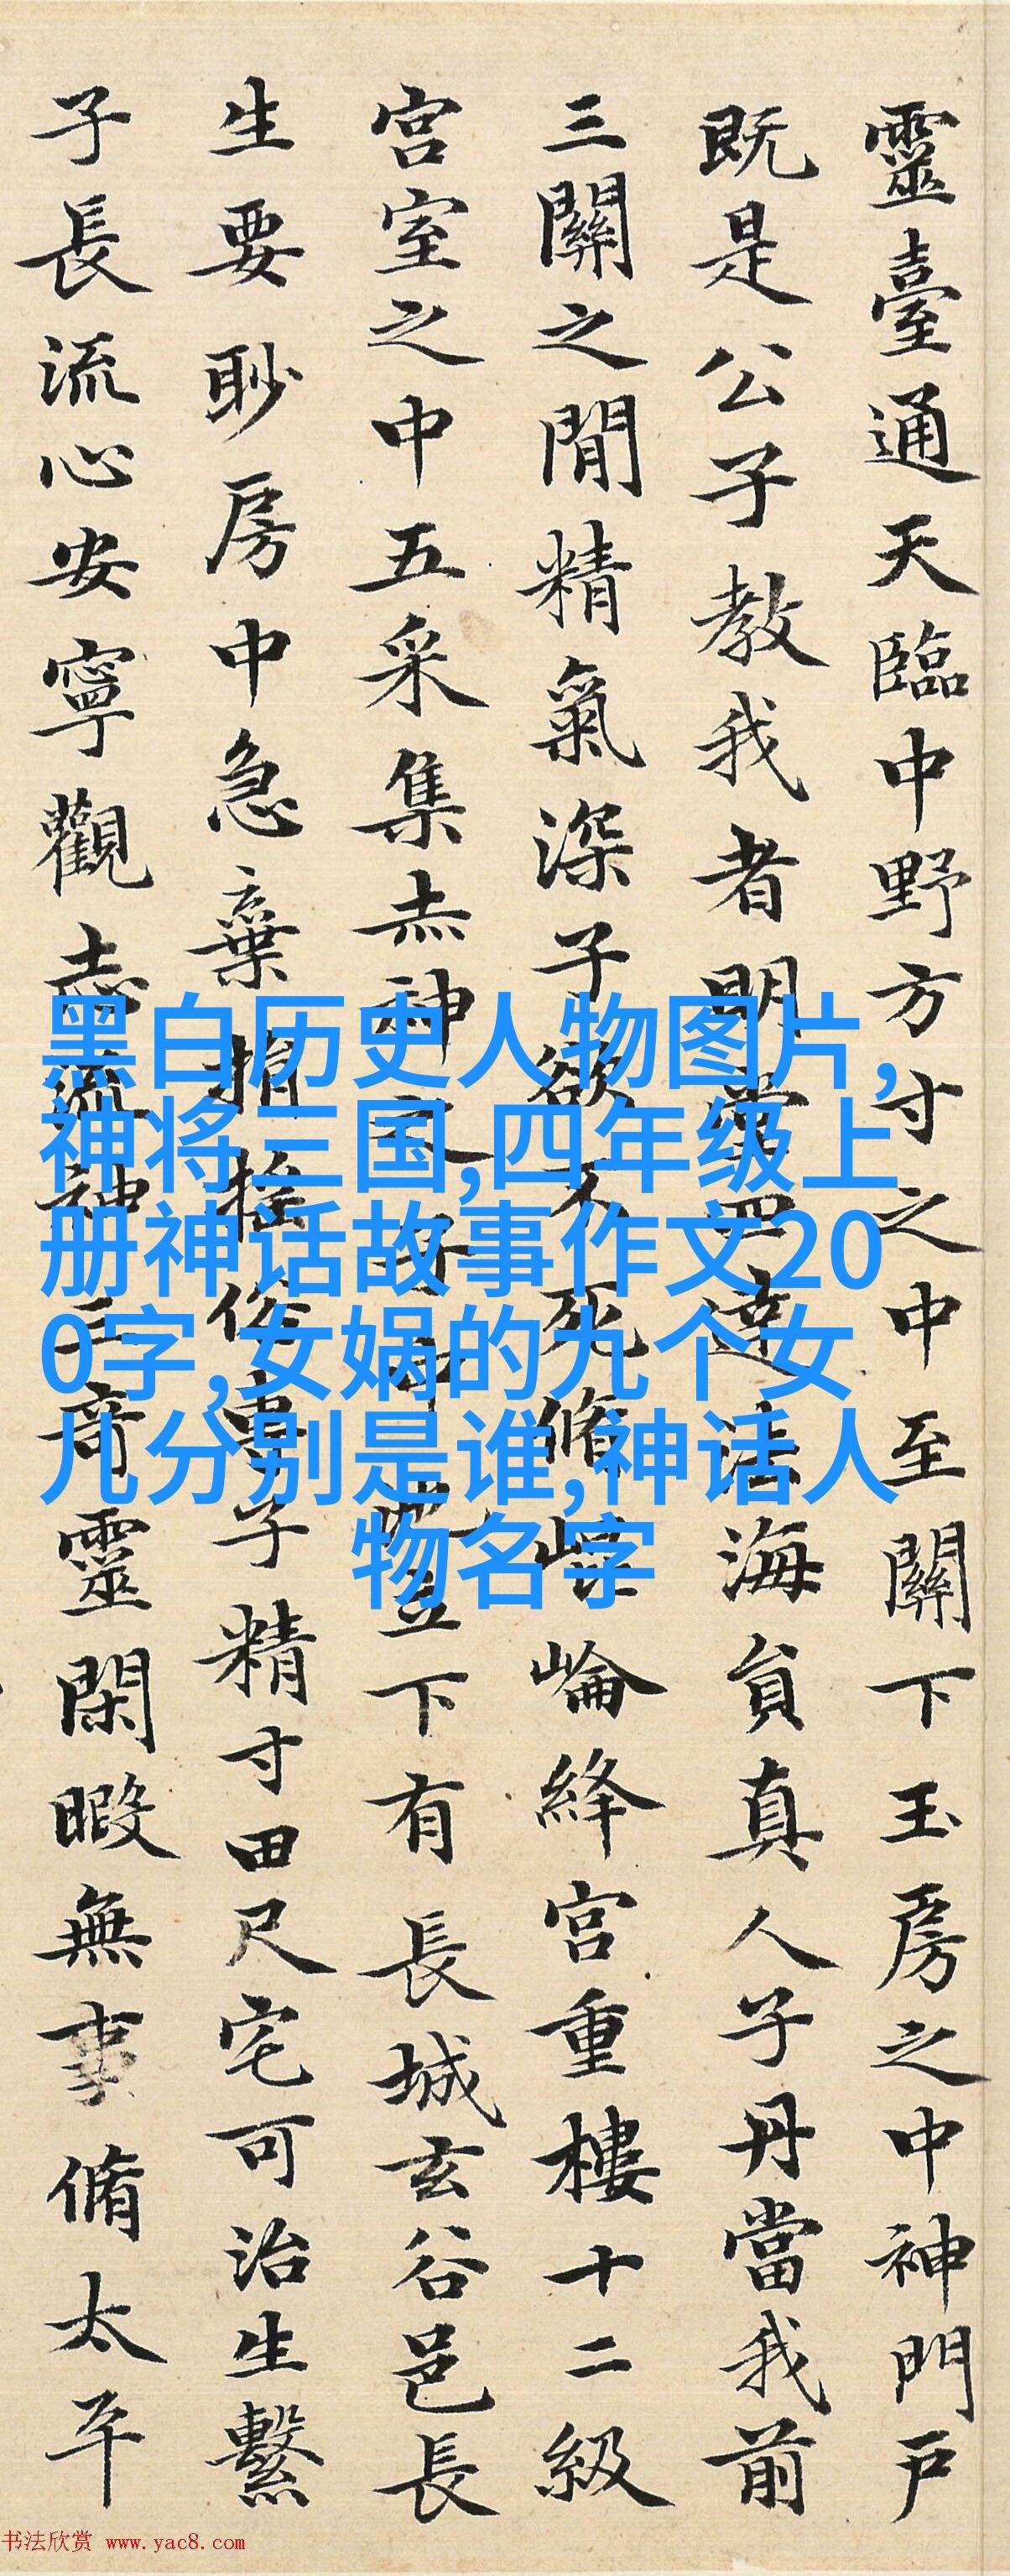 靈臺通天臨中野方寸之中至關下玉房之中神門戶
既是公子教我者明堂四達法海員真人子丹當我前
三關之間精氣深子欲不死脩崐崘絳宮重樓十二級
宮室之中五采集赤神之子中池立下有長城玄谷邑長
生要眇房中急棄捐搖俗專子精寸田尺宅可治生繫
子長流心安寧觀志流神三奇靈閑暇無事脩太平
黑白历史人物图片,
神将三国,四年级上
册神话故事作文20
0字,女娲的九个女
儿分别是谁,神话人
物名字
书法欣赏 www.yac8.com